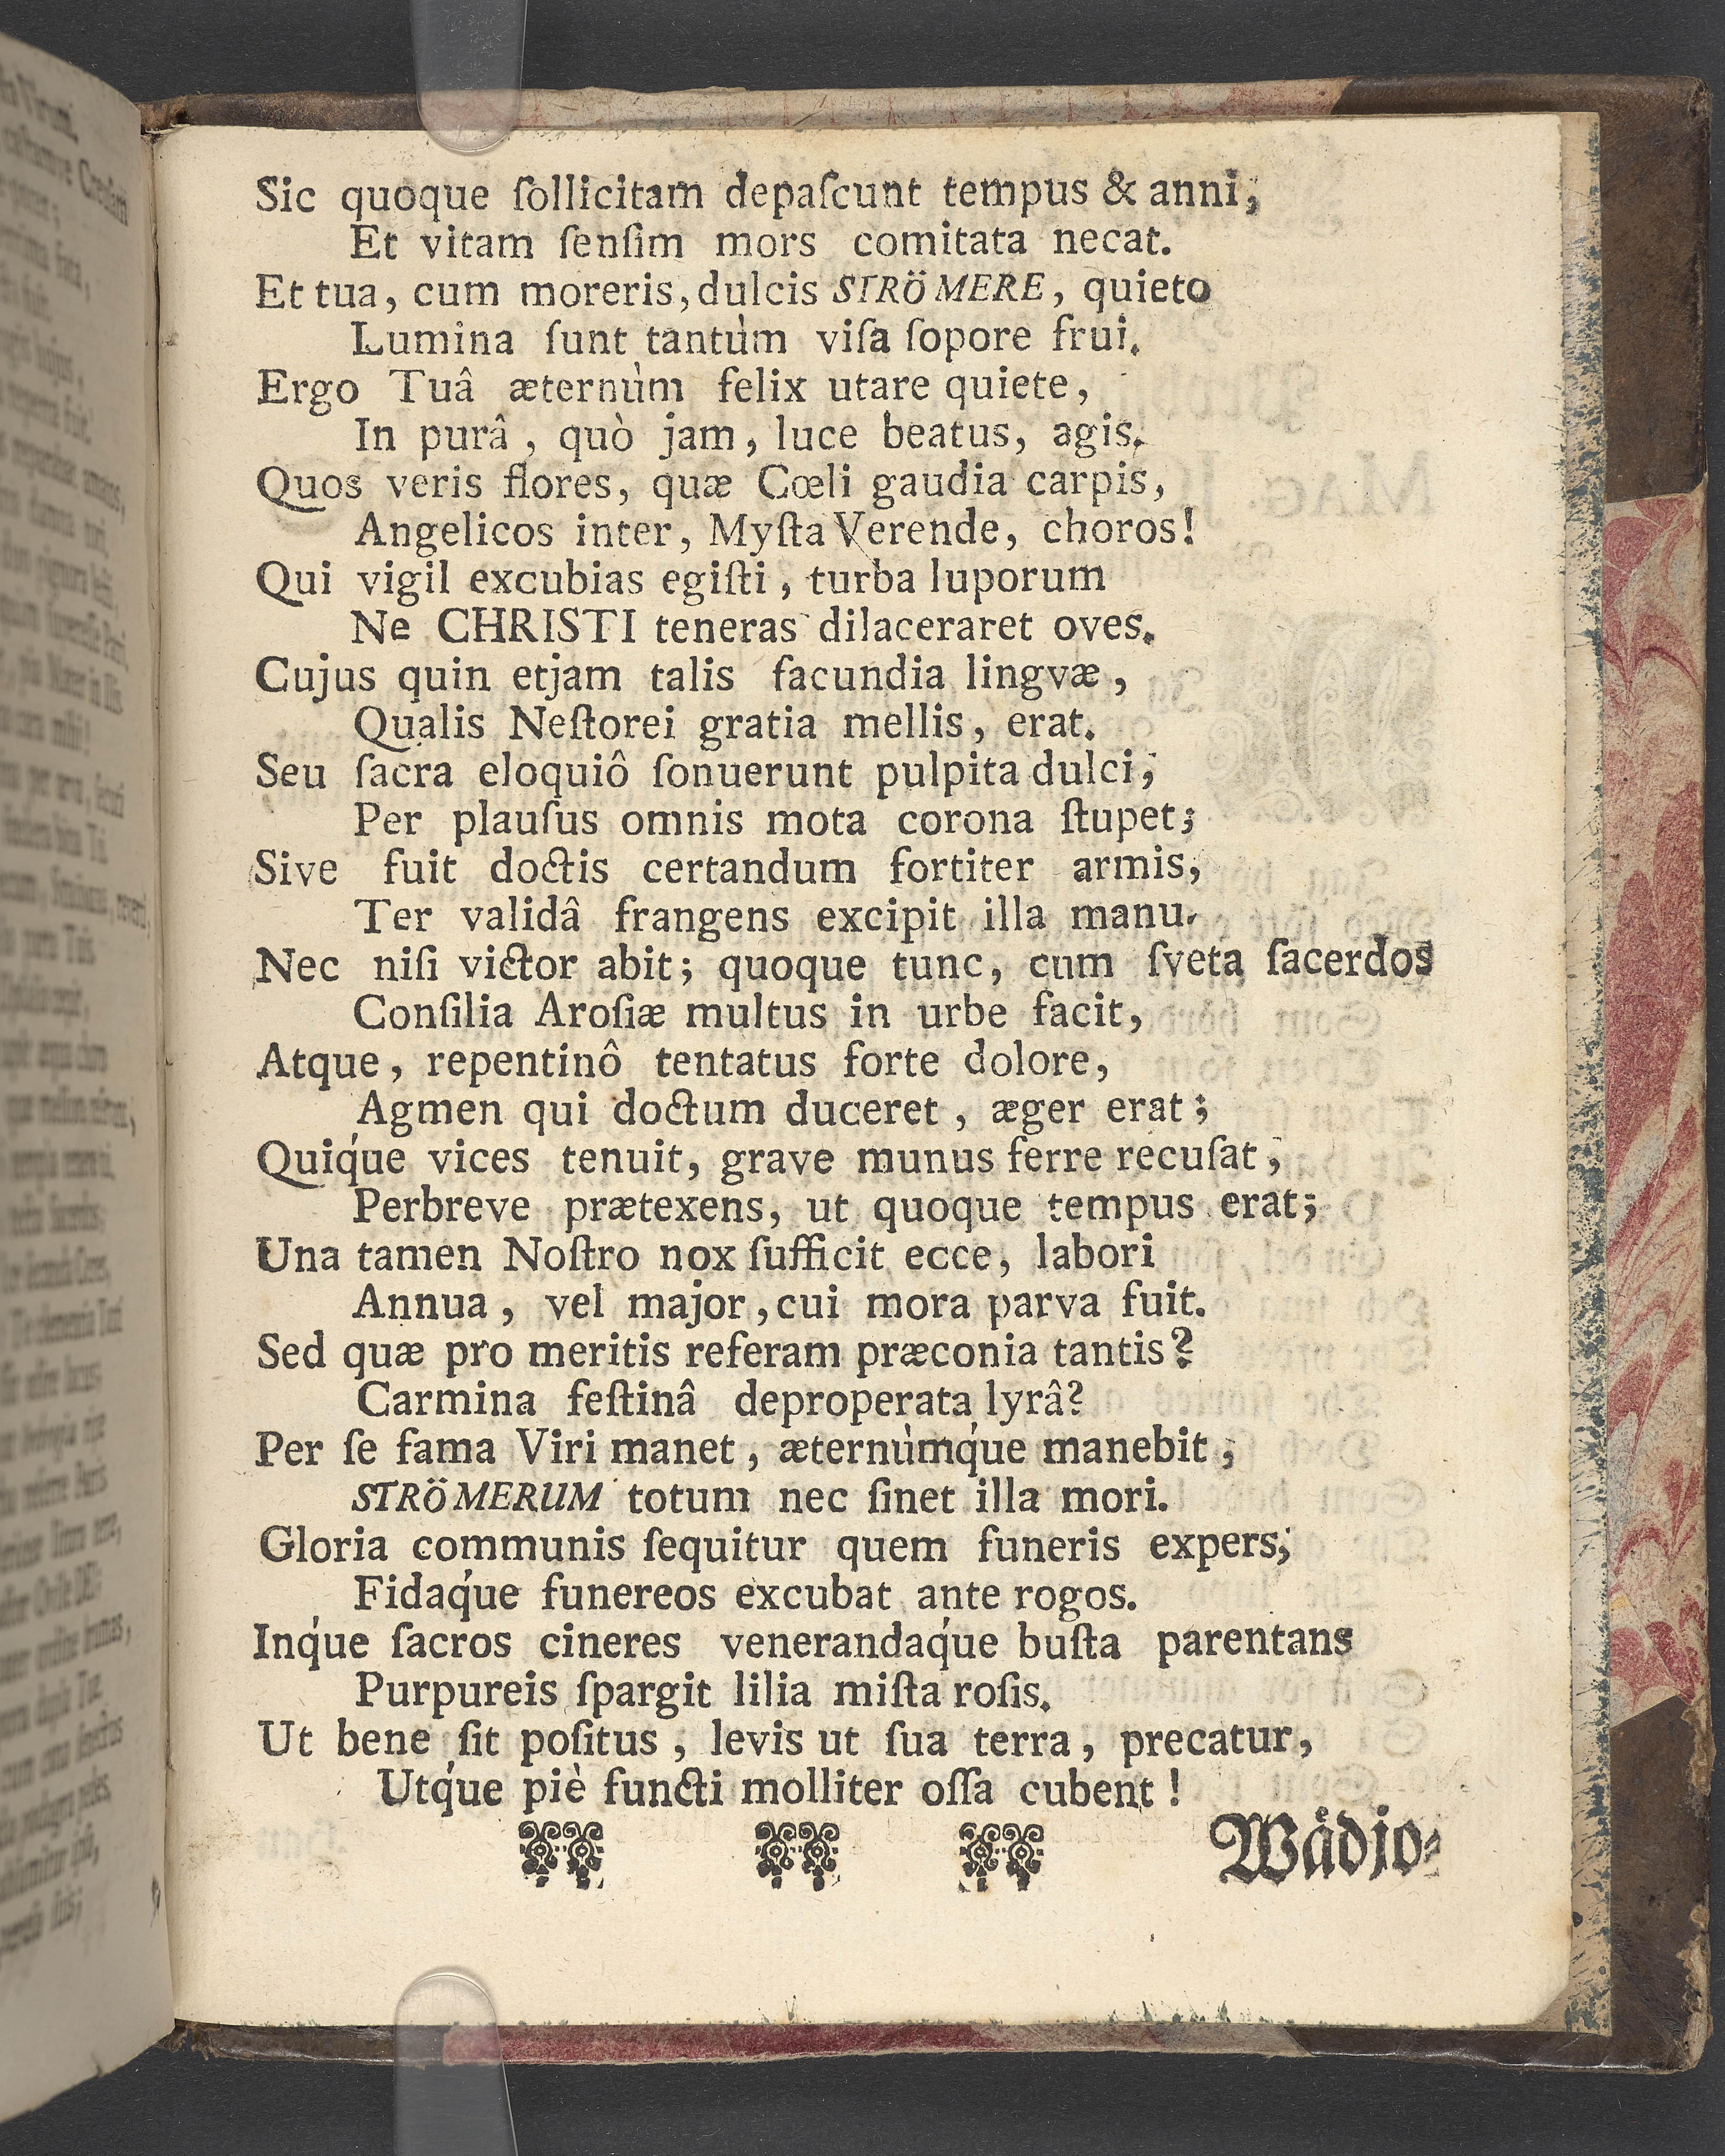 Sic quoque ſollicitam depaſcunt tempus & anni,
Et vitam ſenſim mors comitata necat.
Et tua, cum moreris, dulcis STRÖMERE, quieto
Lumina ſunt tantùm viſa ſopore frui.
Ergo Tuâ æternùm felix utare quiete,
In purâ, quò jam, luce beatus, agis.
Quos veris flores, quæ Cœli gaudia carpis,
Angelicos inter, Myſta Verende, choros!
Qui vigil excubias egiſti, turba luporum
Ne CHRISTI teneras dilaceraret oves.
Cujus quin etjam talis facundia lingvæ,
Qualis Neſtorei gratia mellis, erat.
Seu ſacra eloquiô ſonuerunt pulpita dulci,
Per plauſus omnis mota corona ſtupet;
Sive fuit doctis certandum fortiter armis,
Ter validâ frangens excipit illa manu.
Nec niſi victor abit; quoque tunc, cum ſveta ſacerdos
Conſilia Aroſiæ multus in urbe facit,
Atque, repentinô tentatus forte dolore,
Agmen qui doctum duceret, æger erat;
Quiq́ue vices tenuit, grave munus ferre recuſat,
Perbreve prætexens, ut quoque tempus erat;
Una tamen Noſtro nox ſufficit ecce, labori
Annua, vel major, cui mora parva fuit.
Sed quæ pro meritis referam præconia tantis?
Carmina feſtinâ deproperata lyrâ?
Per ſe fama Viri manet, æternùmq́ue manebit,
STRÖMERUM totum nec ſinet illa mori.
Gloria communis ſequitur quem funeris expers;
Fidaq́ue funereos excubat ante rogos.
Inq́ue ſacros cineres venerandaq́ue buſta parentans
Purpureis ſpargit lilia miſta roſis.
Ut bene ſit poſitus, levis ut ſua terra, precatur,
Utq́ue piè functi molliter oſſa cubent!
Wådjo-